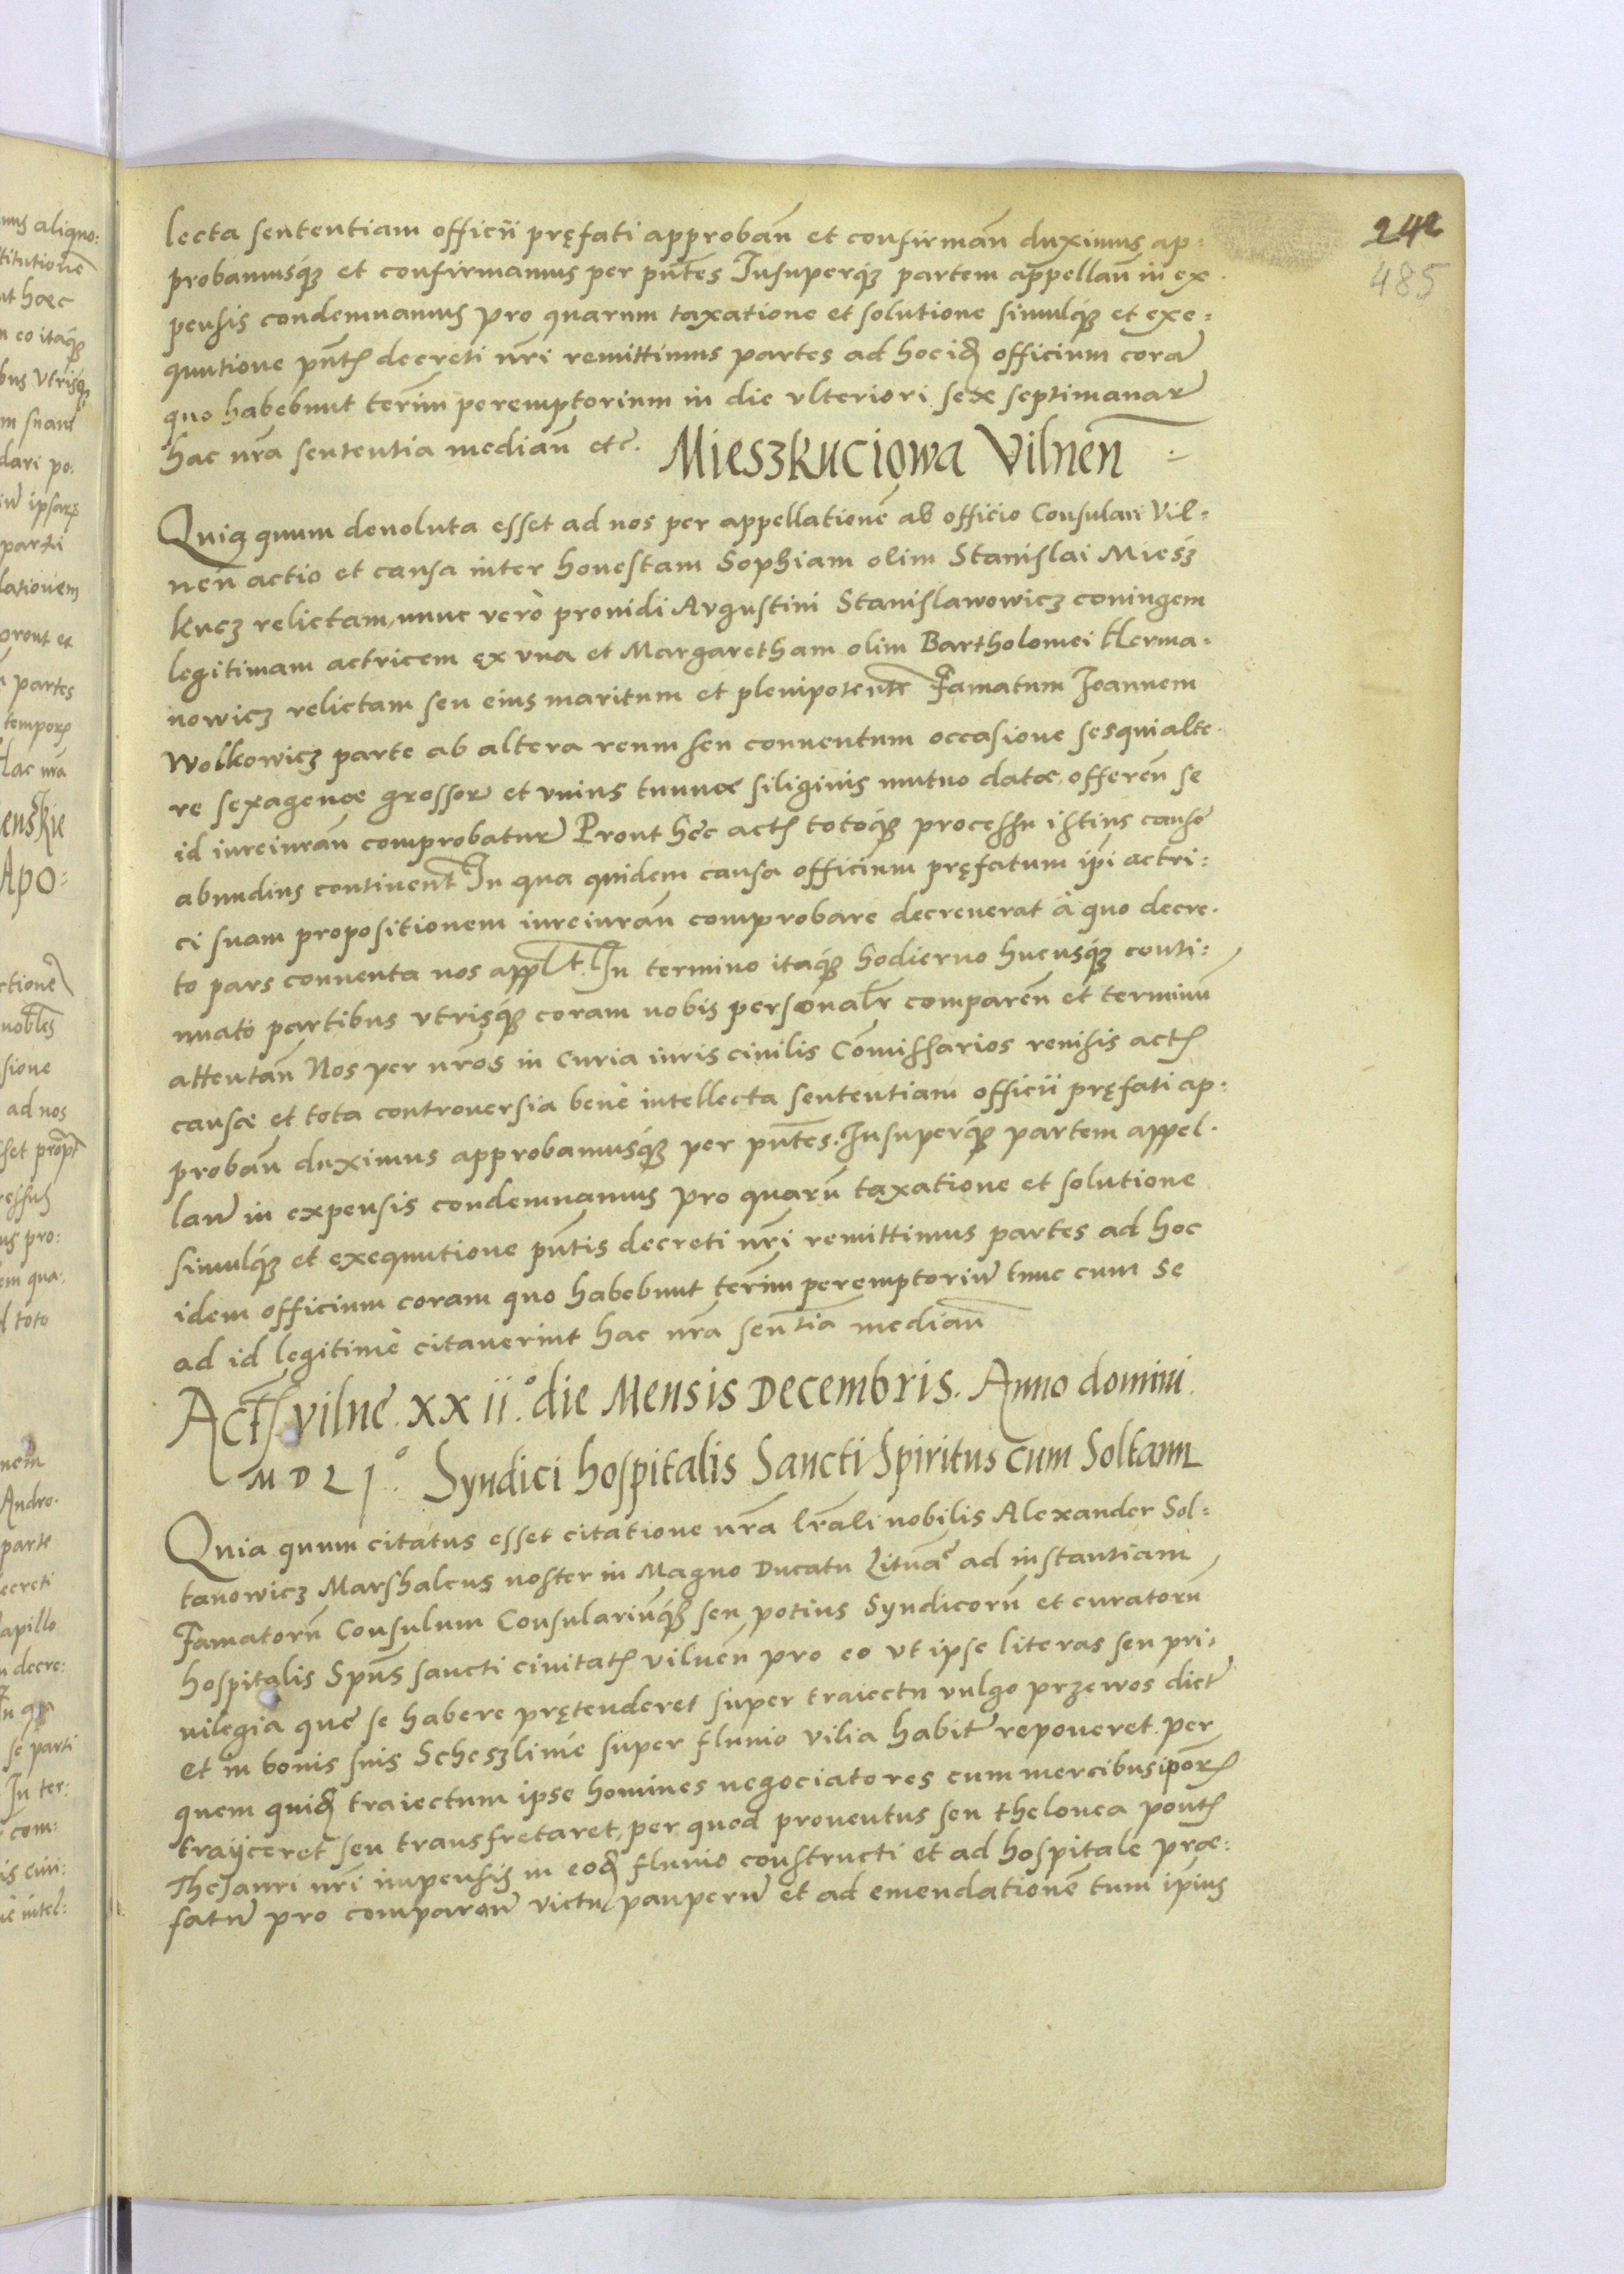 242
485
lecta sententiam officii pręfati approbań et confirmań duximus ap-
probamusq́ et confirmamus per pńtes Insuperq́ partem appellań in ex
pensis condemnamus pro quarum taxatione et solutione simulq́ et exe-
quutione pńtis decreti nrĩ remittimus partes ad hoc idem officium corã
quo habebunt terim̃ peremptorium in die vlteriori sex septimanarũ
hac nrã sententia mediań etc̃.
Mieszkuciowa Vilneñ
Quia quum deuoluta esset ad nos per appellationẽ ab officio Consulari Vil-
neñ actio et causa inter honestam Sophiam olim Stanislai Miesz
kucz relictam, nunc verò prouidi Avgustini Stanislawowicz coniugem
legitimam actricem ex vna et Margaretham olim Bartholomei Herma-
nowicz relictam seu eius maritum et plenipotentẽ Famatum Joannem
Wolkowicz parte ab altera reum seu conuentum occasione sesquialte-
re sexagenæ grossorũ et vnius tunnæ siliginis mutuo datæ offereñ se
id iureiurañ comprobaturũ Prout hęc actis totoq́ processu istius causę
abundius continent̃ In qua quidem causa officium pręfatum ipĩ actri-
ci suam propositionem iureiurañ comprobare decreuerat à quo decre-
to pars conuenta nos applt̃. In termino itaq́ hodierno hucusq́ conti-
nuato partibus vtrisq́ coram nobis personalr̃ compareñ et terminũ
attentañ Nos per nrõs in Curia iuris ciuilis Com̃issarios reuisis actis
causæ et tota controuersia benè intellecta sententiam officii pręfati ap-
probañ duximus approbamusq́ per pñtes. Insuperq́ partem appel-
lañ in expensis condemnamus pro quarũ taxatione et solutione
simulq́ et exequutione pñtis decreti nrĩ remittimus partes ad hoc
idem officium coram quo habebunt terim̃ peremptoriũ tunc cum se
ad id legitimè citauerint hac nrã sentĩa mediañ
Actũ vilnę. XXii.º die Mensis Decembris. Anno domini
M D L Iº. Syndici hospitalis Sancti Spiritus cum Soltann
Quia quum citatus esset citatione nrã lrãli nobilis Alexander Sol-
tanowicz Marshalcus noster in Magno Ducatu Lituãę ad instantiam
Famatorũ Consulum Consulariũq́ seu potius Syndicorũ et curatorũ
hospitalis Spũs sancti ciuitatis vilneñ pro eo vt ipse literas seu pri-
uilegia quę se habere prętenderet super traiectu vulgo przewos dictũ
et in bonis suis Scheszlinie super fluuio vilia habitũ reponeret. per
quem quidem traiectum ipse homines negociatores cum mercibus ipõrũ
traijceret seu transfretaret, per quod prouentus seu thelonea pontis
Thesauri nrĩ impensis in eodem fluuio constructi et ad hospitale præ-
fatũ pro comparañ victu pauperũ et ad emendationẽ tum ipĩus